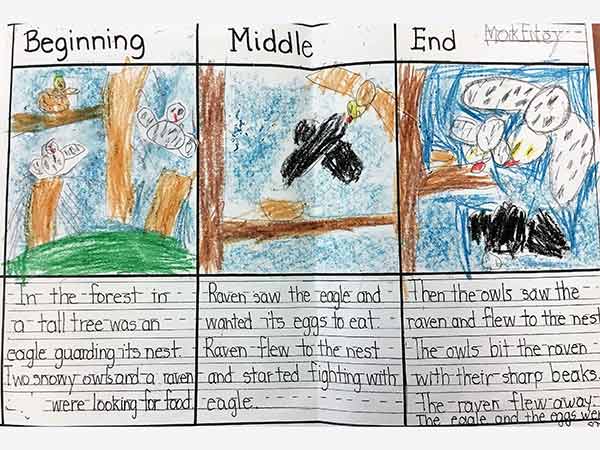 Beginning
In the forest in
a tall tree was an
eagle guarding its nest.
Two snowy owls and a raven
were looking for food
Middle
Raven saw the eagle and
wanted its eggs to eat.
Raven flew to the nest
and started fighting with
eagle.
End
Then the owls saw the
raven and flew to the nest
The owls bit the raven
with their sharp beaks.
The raven flew away.
The eagle and the eggs wer